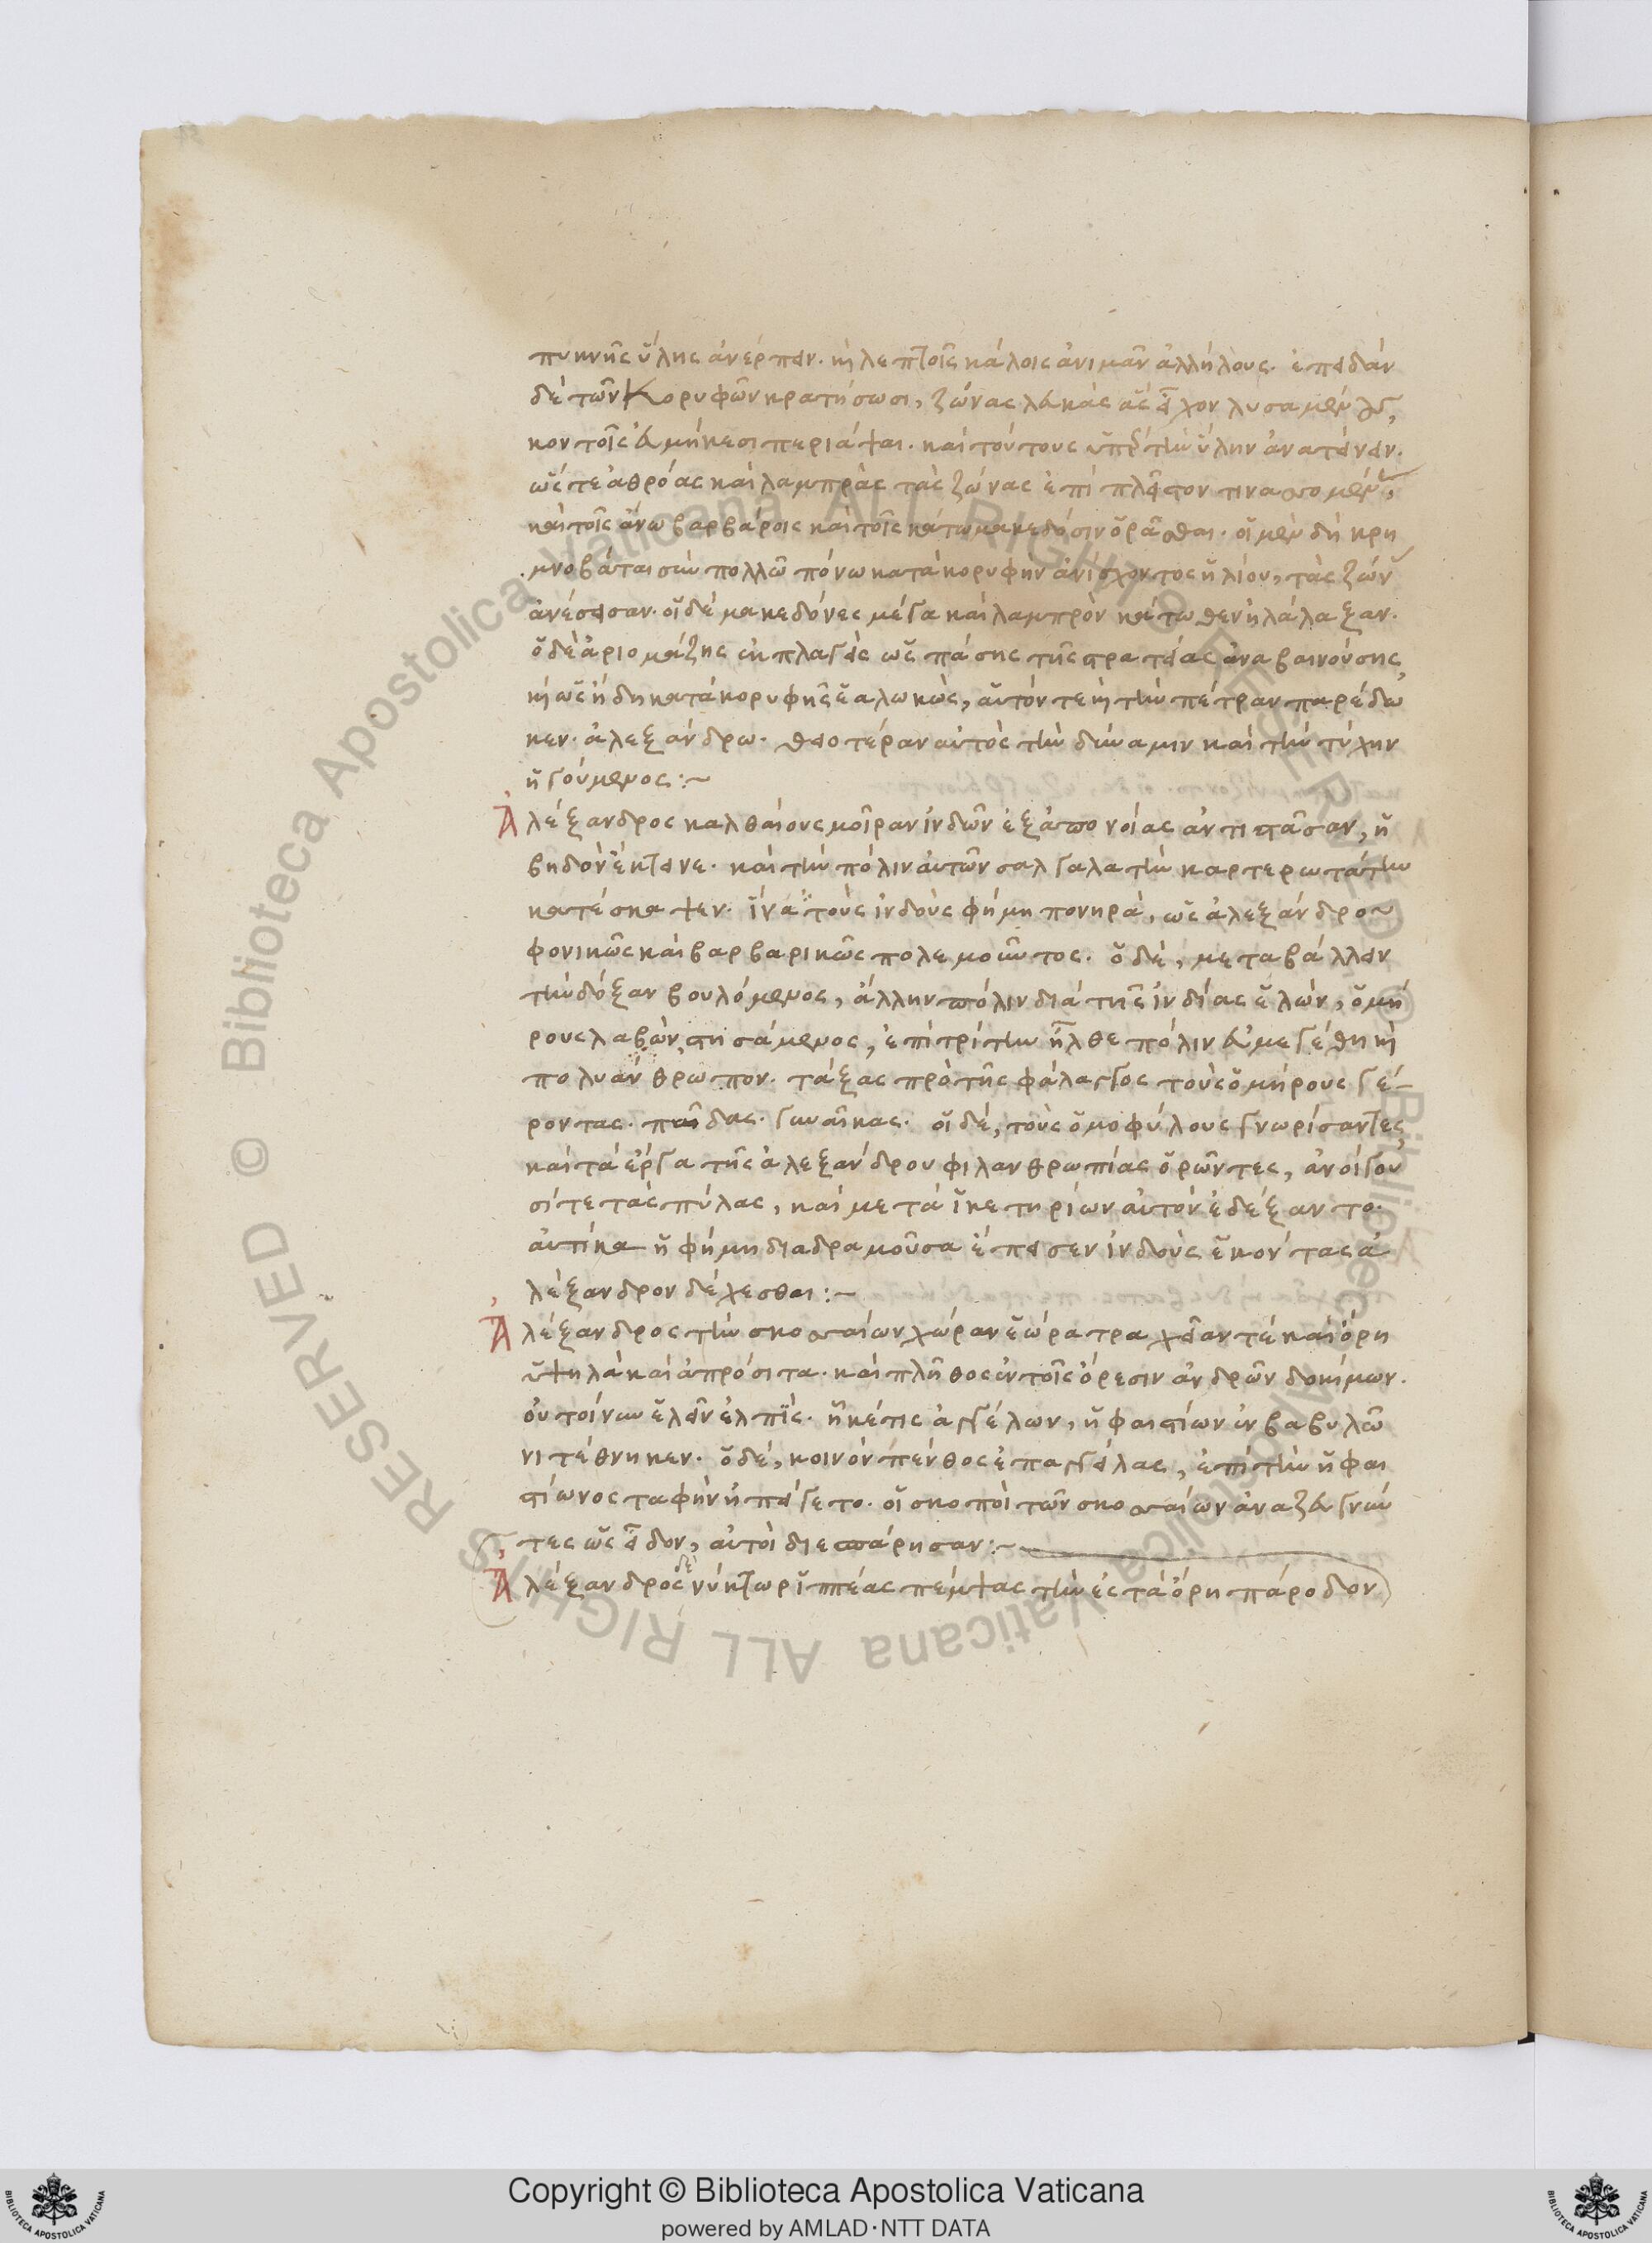 πυκνῆς ὕλης ἀνέρπειν. καὶ λεπτοῖς κάλοις ἀνιμᾶν ἀλλήλους. ἐπειδὰν
δὲ τῶν κορυφῶν κρατήσωσι, ζώνας λευκὰς ἃς εἶχον λυσαμένους,
κοντοῖς εὐμήκεσι περιάψαι. καὶ τούτους ὑπὲρ τὴν ὕλην ἀνατείνειν.
ὥστε ἀθρόας καὶ λαμπρὰς τὰς ζώνας ἐπὶ πλεῖστον τινασσομένας,
καὶ τοῖς ἄνω βαρβάροις καὶ τοῖς κάτω μακεδόσιν ὁρᾶσθαι. οἱ μὲν δὴ κρη
μνοβάται σὺν πολλῶ πόνω κατὰ κορυφὴν ἀνίσχοντος ἡλίου, τὰς ζών
ἀνέσεισαν. οἱ δὲ μακεδόνες μέγα καὶ λαμπρὸν κάτωθεν ἠλάλαξαν.
ὁ δὲ ἀριομάζης ἐκπλαγεὶς ὡς πάσης τῆς στρατείας ἀναβαινούσης,
καὶ ὡς ἤδη κατὰ κορυφῆς ἑαλωκὼς, αὑτόν τε καὶ τὴν πέτραν παρέδω
κεν. ἀλεξάνδρω. θειοτέραν αὐτὸς τὴν δύναμιν καὶ τὴν τύχην
ἡγούμενος:~
Ἀλέξανδρος καλθαίους μοῖραν ἰνδῶν ἐξ ἀπονοίας ἀντιστᾶσαν, ἡ
βηδὸν ἔκτεινε. καὶ τὴν πόλιν αὐτῶν σαλγαλα τὴν καρτερωτάτην
κατέσκαψεν. ἵνα τοὺς ἰνδοὺς φήμη πονηρὰ, ὡς ἀλεξάνδρου
φονικῶς καὶ βαρβαρικῶς πολεμοῦντος. ὁ δὲ, μεταβάλλειν
τὴν δόξαν βουλόμενος, ἄλλην πόλιν διὰ τῆς ἰνδίας ἑλών, ὁμή
ρους λαβὼν στησάμενος, ἐπὶ τρίτην ἦλθε πόλιν εὐμεγέθη καὶ
πολυάνθρωπον. τάξας πρὸ τῆς φάλαγγος τοὺς ὁμήρους γέ-
ροντας. παῖδας. γυναῖκας. οἱ δὲ, τοὺς ὁμοφύλους γνωρίσαντες,
καὶ τὰ ἔργα τῆς ἀλεξάνδρου φιλανθρωπίας ὁρῶντες, ἀνοίγου
σί τε τὰς πύλας, καὶ μετὰ ἱκετηρίων αὐτὸν ἐδέξαντο.
αὐτίκα ἡ φήμη διαδραμοῦσα ἔπεισεν ἰνδοὺς ἑκόντας ἀ
λέξανδρον δέχεσθαι:~
Ἀλέξανδρος τὴν σκοσσαίων χώραν ἑώρα τραχεῖάν τέ καὶ ὄρη
ὑψηλὰ καὶ ἀπρόσιτα. καὶ πλῆθος ἐν τοῖς ὄρεσιν ἀνδρῶν δοκίμων.
οὐ τοίνυν ἑλεῖν ἐλπὶς. ἧκέ τις ἀγγέλων, ἡφαιστίων ἐν βαβυλῶ
νι τέθνηκεν. ὁ δὲ, κοινὸν πένθος ἐπαγγείλας, ἐπὶ τὴν ἡφαι
στίωνος ταφὴν ἠπείγετο. οἱ σκοποὶ τῶν σκοσσαίων ἀναζευγνύν
τες ὡς εἶδον, αὐτοὶ διεσπάρησαν:~
Ἀλέξανδρος δὲ νύκτωρ ἱππέας πέμψας τὴν ἐς τὰ ὄρη πάροδον
Copyright © Biblioteca Apostolica Vaticana
powered by AMLAD·NTT DATA